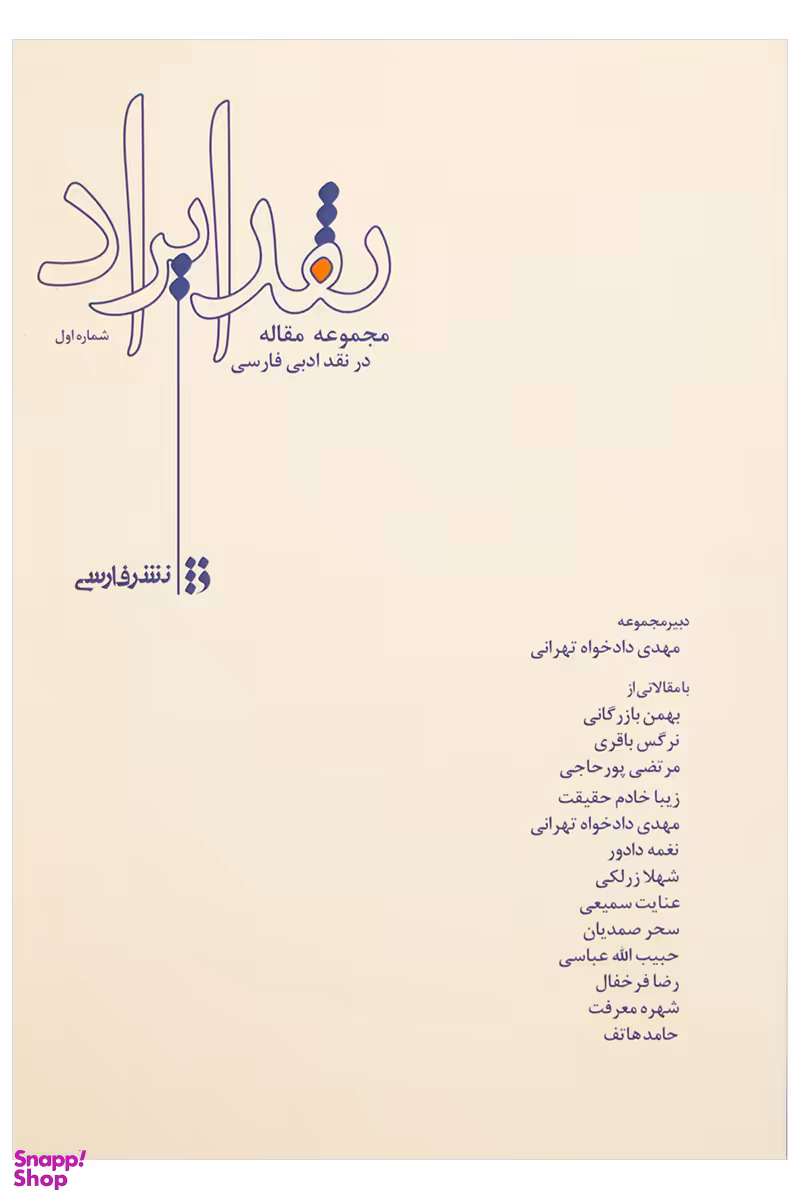 نقد ایراد
مجموعه مقاله
در نقد ادبی فارسی
شماره اول
نشر فارسی
دبیر مجموعه
مهدی دادخواه تهرانی
با مقالاتی از
بهمن بازرگانی
نرگس باقری
مرتضی پورحاجی
زیبا خادم حقیقت
مهدی دادخواه تهرانی
نغمه دادور
شهلا زرلکی
عنایت سمیعی
سحر صمدیان
حبیب الله عباسی
رضا فرخفال
شهره معرفت
حامد هاتف
Snapp!
Shop